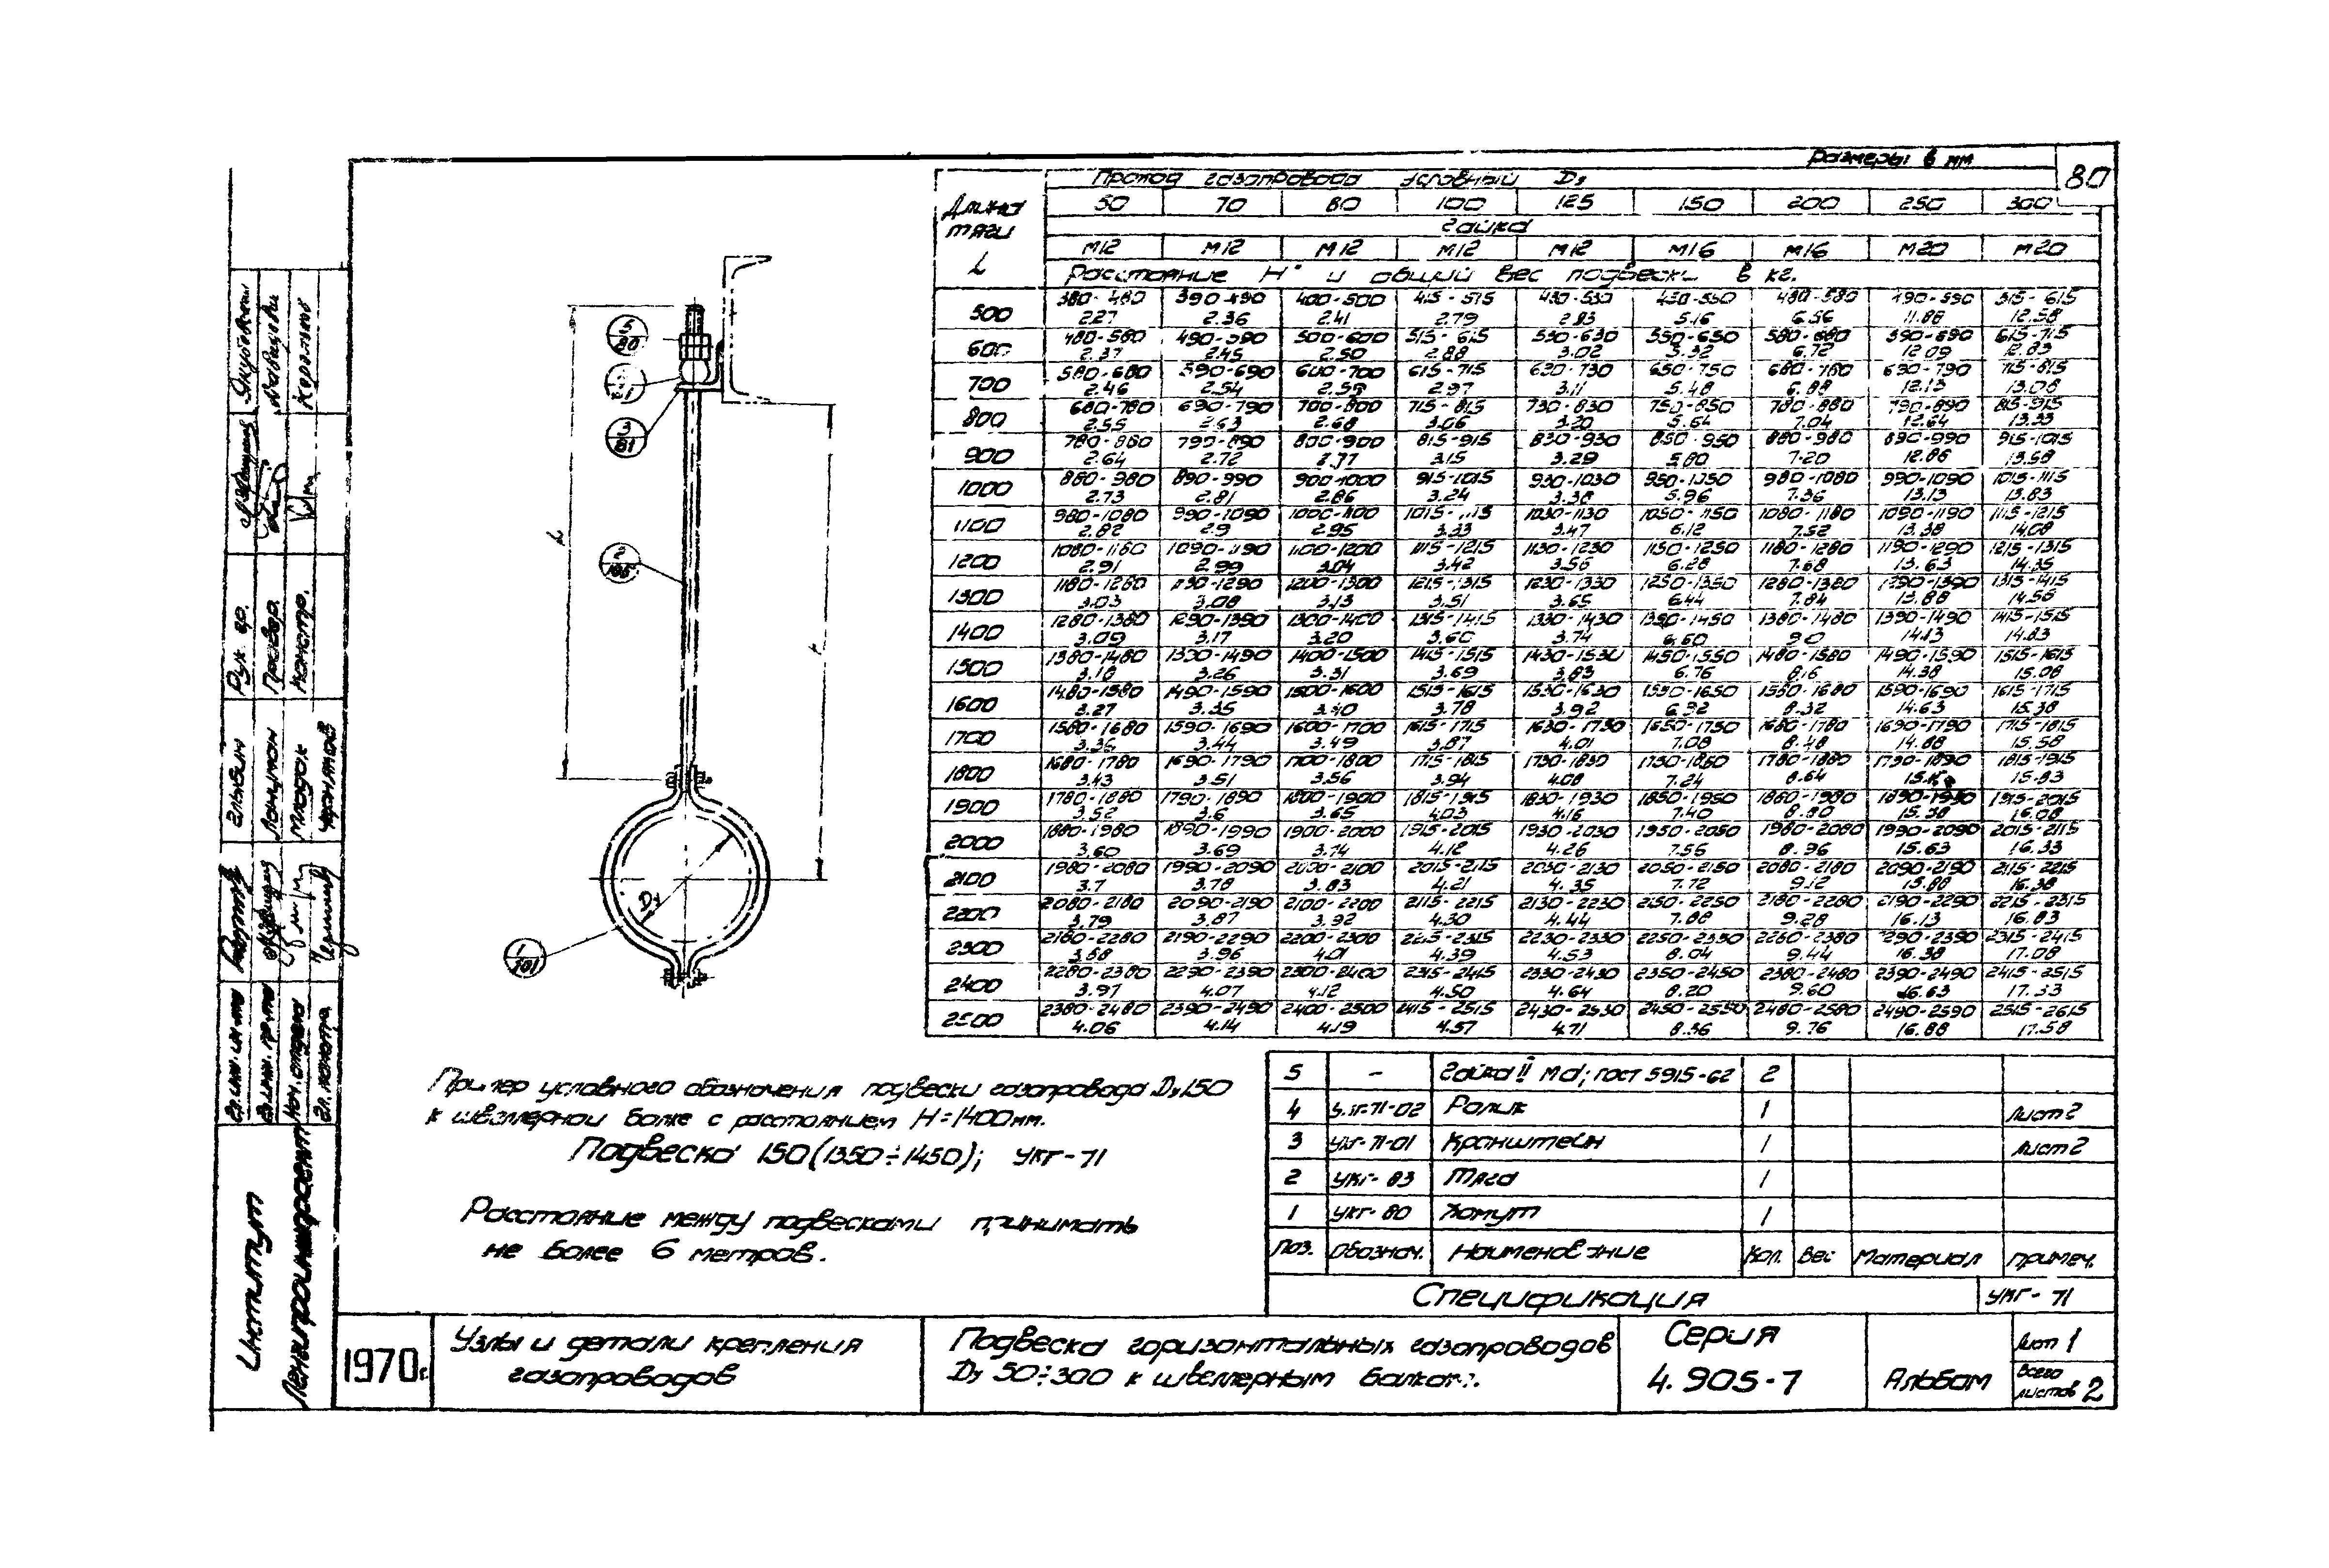 Размеры в мм
80
Длина тяги L
Проход газопровода условный Dу
50 70 80 100 125 150 200 250 300
Гайка
М12 М12 М12 М12 М12 М16 М16 М20 М20
Расстояние Н* и общий вес подвески в кг.
500 380-480 390-490 400-500 415-515 430-530 450-550 480-580 490-590 515-615
2.27 2.36 2.41 2.79 2.93 5.16 6.56 11.88 12.58
600 480-580 490-590 500-600 515-615 530-630 550-650 580-680 590-690 615-715
2.37 2.45 2.50 2.88 3.02 5.32 6.72 12.09 12.83
700 580-680 590-690 600-700 615-715 630-730 650-750 680-780 690-790 715-815
2.46 2.54 2.59 2.97 3.11 5.48 6.88 12.13 13.08
800 680-780 690-790 700-800 715-815 730-830 750-850 780-880 790-890 815-915
2.55 2.63 2.68 3.06 3.20 5.64 7.04 12.64 13.33
900 780-880 790-890 800-900 815-915 830-930 850-950 880-980 890-990 915-1015
2.64 2.72 2.77 3.15 3.29 5.80 7.20 12.86 13.58
1000 880-980 890-990 900-1000 915-1015 930-1030 950-1050 980-1080 990-1090 1015-1115
2.73 2.81 2.86 3.24 3.38 5.96 7.36 13.13 13.83
1100 980-1080 990-1090 1000-1100 1015-1115 1030-1130 1050-1150 1080-1180 1090-1190 1115-1215
2.82 2.9 2.95 3.33 3.47 6.12 7.52 13.38 14.08
1200 1080-1180 1090-1190 1100-1200 1115-1215 1130-1230 1150-1250 1180-1280 1190-1290 1215-1315
2.91 2.99 3.04 3.42 3.56 6.28 7.68 13.63 14.35
1300 1180-1280 1190-1290 1200-1300 1215-1315 1230-1330 1250-1350 1280-1380 1290-1390 1315-1415
3.03 3.08 3.13 3.51 3.65 6.44 7.84 13.88 14.58
1400 1280-1380 1290-1390 1300-1400 1315-1415 1330-1430 1350-1450 1380-1480 1390-1490 1415-1515
3.09 3.17 3.20 3.60 3.74 6.60 90 14.13 14.83
1500 1380-1480 1390-1490 1400-1500 1415-1515 1430-1530 1450-1550 1480-1580 1490-1590 1515-1615
3.18 3.26 3.31 3.69 3.83 6.76 8.16 14.38 15.08
1600 1480-1580 1490-1590 1500-1600 1515-1615 1530-1630 1550-1650 1580-1680 1590-1690 1615-1715
3.27 3.35 3.40 3.78 3.92 6.92 8.32 14.63 15.38
1700 1580-1680 1590-1690 1600-1700 1615-1715 1630-1730 1650-1750 1680-1780 1690-1790 1715-1815
3.36 3.44 3.49 3.87 4.01 7.08 8.48 14.88 15.58
1800 1680-1780 1690-1790 1700-1800 1715-1815 1730-1830 1750-1850 1780-1880 1790-1890 1815-1915
3.43 3.51 3.56 3.94 4.08 7.24 8.64 15.83
1900 1780-1880 1790-1890 1800-1900 1815-1915 1830-1930 1850-1950 1880-1980 1890-1990 1915-2015
3.52 3.6 3.65 4.03 4.16 7.40 8.80 15.38 16.08
2000 1880-1980 1890-1990 1900-2000 1915-2015 1930-2030 1950-2050 1980-2080 1990-2090 2015-2115
3.60 3.69 3.74 4.12 4.26 7.56 8.96 15.63 16.33
2100 1980-2080 1990-2090 2000-2100 2015-2115 2030-2130 2050-2150 2080-2180 2090-2190 2115-2215
3.7 3.78 3.83 4.21 4.35 7.72 9.12 15.88 16.38
2200 2080-2180 2090-2190 2100-2200 2115-2215 2130-2230 2150-2250 2180-2280 2190-2290 2215-2315
3.79 3.87 3.92 4.30 4.44 7.88 9.28 16.13 16.83
2300 2180-2280 2190-2290 2200-2300 2215-2315 2230-2330 2250-2350 2280-2380 2290-2390 2315-2415
3.88 3.96 4.01 4.39 4.53 8.04 9.44 16.38 17.08
2400 2280-2380 2290-2390 2300-2400 2315-2415 2330-2430 2350-2450 2380-2480 2390-2490 2415-2515
3.97 4.07 4.12 4.50 4.64 8.20 9.60 16.63 17.33
2500 2380-2480 2390-2490 2400-2500 2415-2515 2430-2530 2450-2550 2480-2580 2490-2590 2515-2615
4.06 4.14 4.19 4.57 4.71 8.36 9.76 16.88 17.58
5
80
3
81
2
105
1
101
Dу
Пример условного обозначения подвески газопровода Dу 150
к швеллерной балке с расстоянием Н=1400мм.
Подвеска 150(1350÷1450); УКГ-71
Расстояние между подвесками принимать
не более 6 метров.
5 - Гайка II Md; ГОСТ 5915-62 2
4 УКГ-71-02 Ролик 1 Лист 2
3 УКГ-71-01 Кронштейн 1 Лист 2
2 УКГ-83 Тяга 1
1 УКГ-80 Хомут 1
Поз. Обознач. Наименование Кол. Вес Материал Примеч.
Спецификация УКГ-71
1970г. Узлы и детали крепления
газопроводов
Подвеска горизонтальных газопроводов
Dу 50÷300 к швеллерным балкам.
Серия
4.905-7
Альбом
Лист 1
Всего
листов 2
Институт
Ленгипроинжпроект
Гл. инж. ин-та
Гл. инж. пр-та
Нач. отдела
Рук. гр.
Провер.